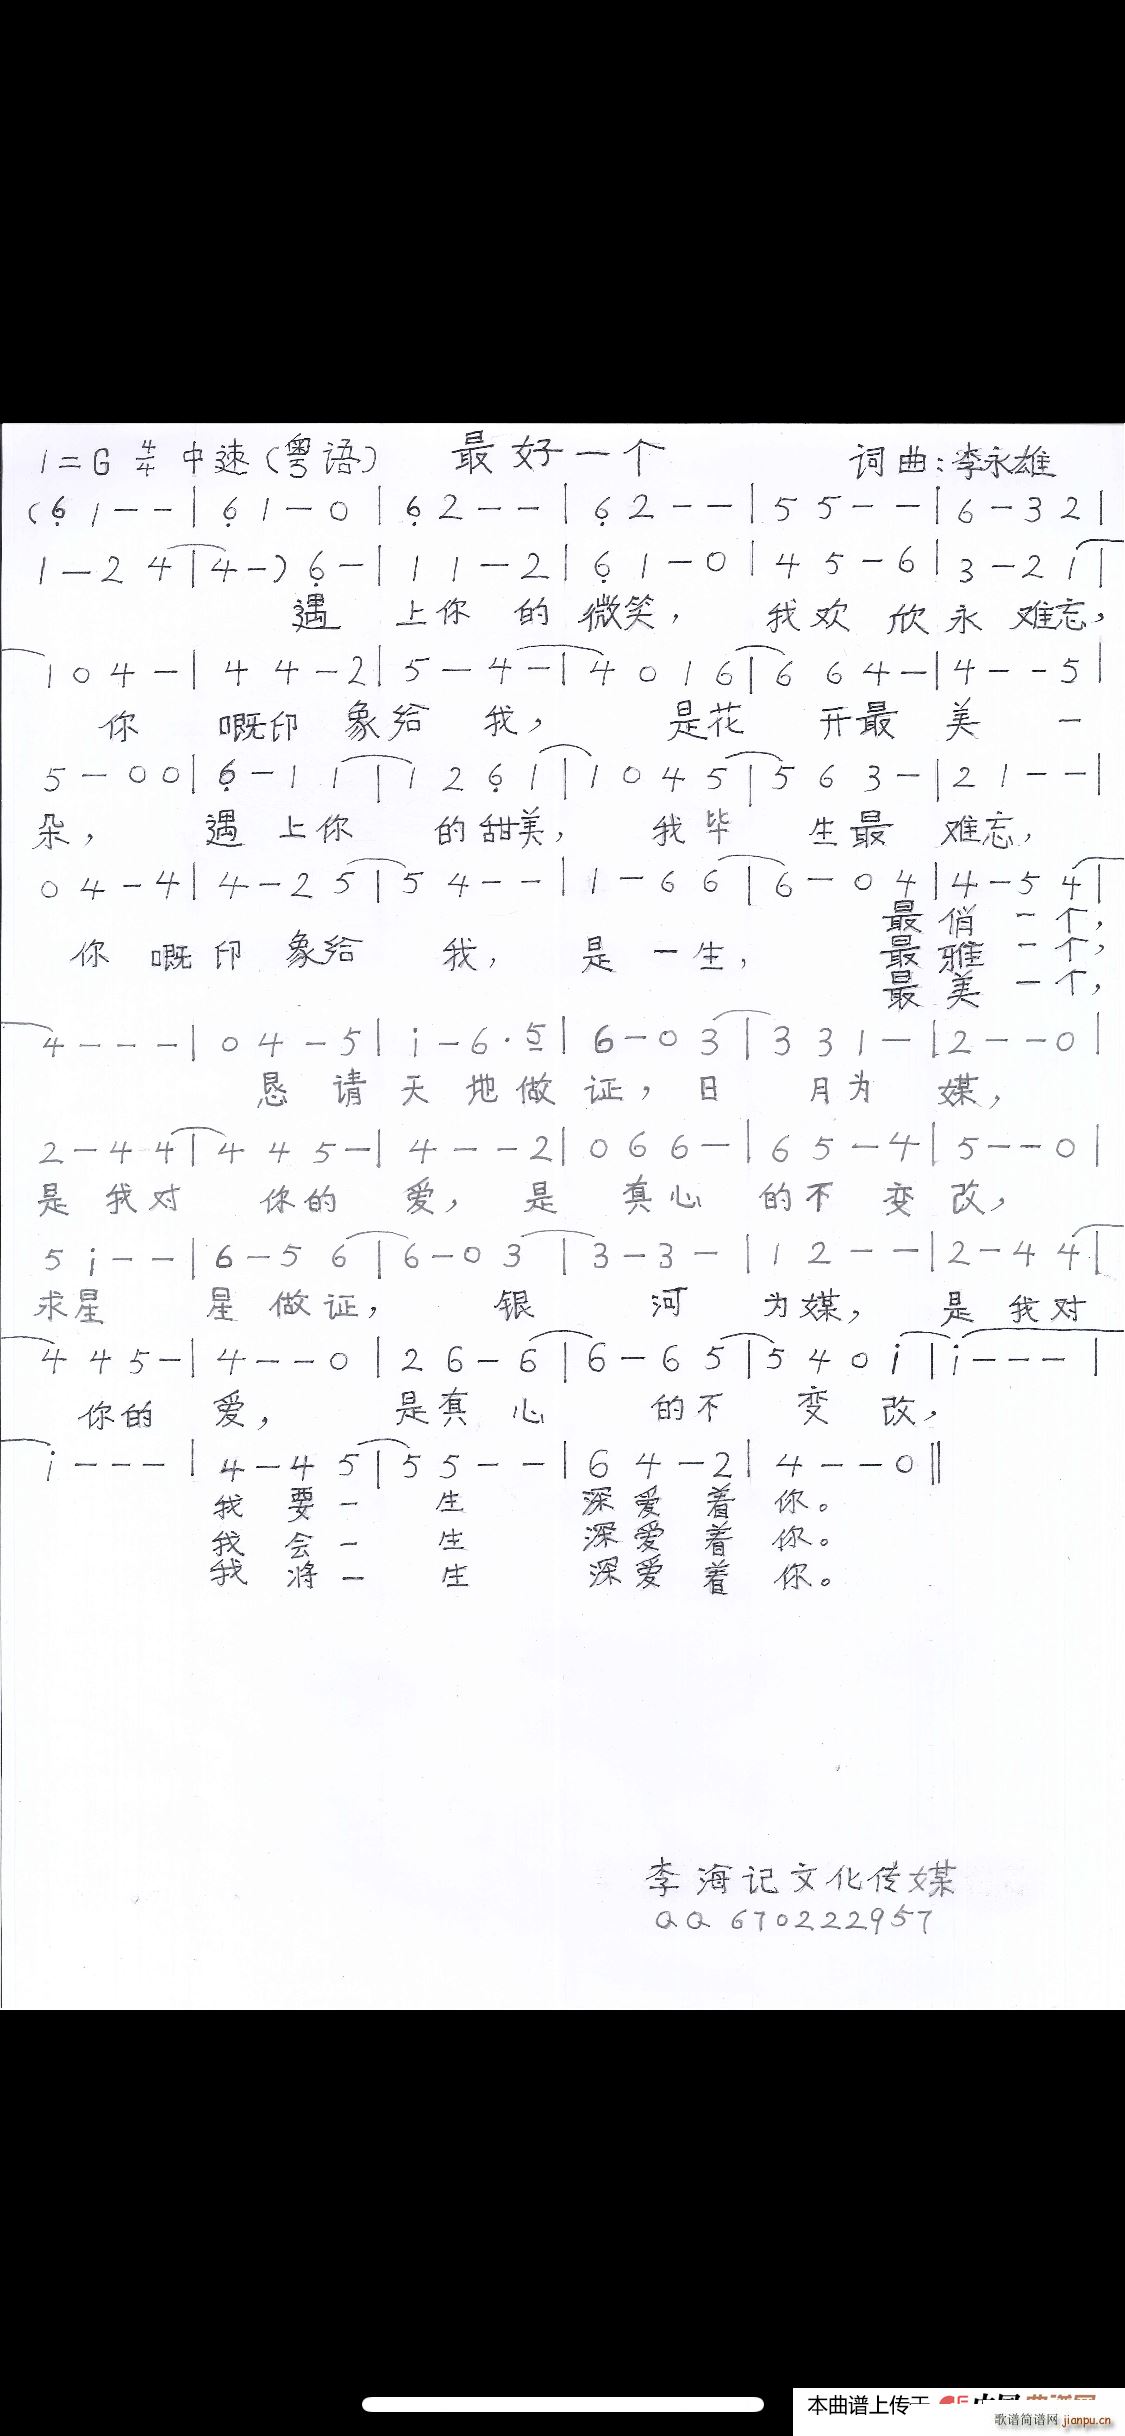 1=G 4/4 中速(粤语) 最好一个 词曲:李永雄
(6̣ 1 - - | 6̣ 1 - 0 | 6̣ 2 - - | 6̣ 2 - - | 5 5 - - | 6 - 3 2 |
1 - 2 4 | 4 - ) 6̣ - | 1 1 - 2 | 6̣ 1 - 0 | 4 5 - 6 | 3 - 2 1 |
遇 上你 的 微笑, 我欢 欣 永 难忘,
1 0 4 - | 4 4 - 2 | 5 - 4 - | 4 0 1 6 | 6 6 4 - | 4 - - 5 |
你 嘅印 象给 我, 是花 开最 美 一
5 - 0 0 | 6̣ - 1 1 | 1 2 6̣ 1 | 1 0 4 5 | 5 6 3 - | 2 1 - - |
朵, 遇 上你 的甜美, 我毕 生最 难忘,
0 4 - 4 | 4 - 2 5 | 5 4 - - | 1 - 6 6 | 6 - 0 4 | 4 - 5 4 |
最 俏 一 个,
你 嘅 印 象给 我, 是 一 生, 最 雅 一 个,
最 美 一 个,
4 - - - | 0 4 - 5 | i - 6 · 5̲ | 6 - 0 3 | 3 3 1 - | 2 - - 0 |
恳 请 天 地 做 证, 日 月为 媒,
2 - 4 4 | 4 4 5 - | 4 - - 2 | 0 6 6 - | 6 5 - 4 | 5 - - 0 |
是 我对 你的 爱, 是 真心 的不 变 改,
5 i - - | 6 - 5 6 | 6 - 0 3 | 3 - 3 - | 1 2 - - | 2 - 4 4 |
求星 星 做 证, 银 河 为媒, 是 我对
4 4 5 - | 4 - - 0 | 2 6 - 6 | 6 - 6 5 | 5 4 0 i | i - - - |
你的 爱, 是真 心 的不 变 改,
i - - - | 4 - 4 5 | 5 5 - - | 6 4 - 2 | 4 - - 0 ‖
我 要 一 生 深 爱 着 你。
我 会 一 生 深 爱 着 你。
我 将 一 生 深 爱 着 你。
李海记文化传媒
QQ 670222957
本曲谱上传于
歌谱简谱网 jianpu.cn